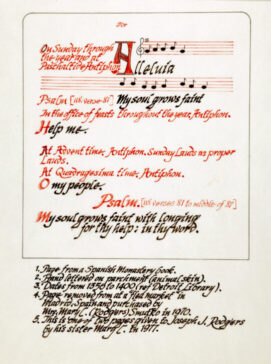 For
On Sunday through
the year and at
Paschaltide Antiphon
Alleluia
Psalm [118, verse 81] My soul grows faint
In the office of feasts throughout the year, Antiphon.
Help me.
At Advent time, Antiphon, Sunday Lauds as proper
Lauds.
At Quadragesima time, Antiphon.
O my people.
Psalm. [118 verses 81 to middle of 81]
My soul grows faint with longing
for thy help: in thy word.
1. Page from a Spanish Monastery book.
2. Hand lettered on parchment (animal skin).
3. Dates from 1350 to 1400 (ref Detroit Library).
4. Page removed from at flea market in
Madrid Spain and purchased by
Mrs. Mary L. (Rodgers) in 1970.
5. This is one of two pages given to Joseph J. Rodgers
by his sister Mary L. in 1977.